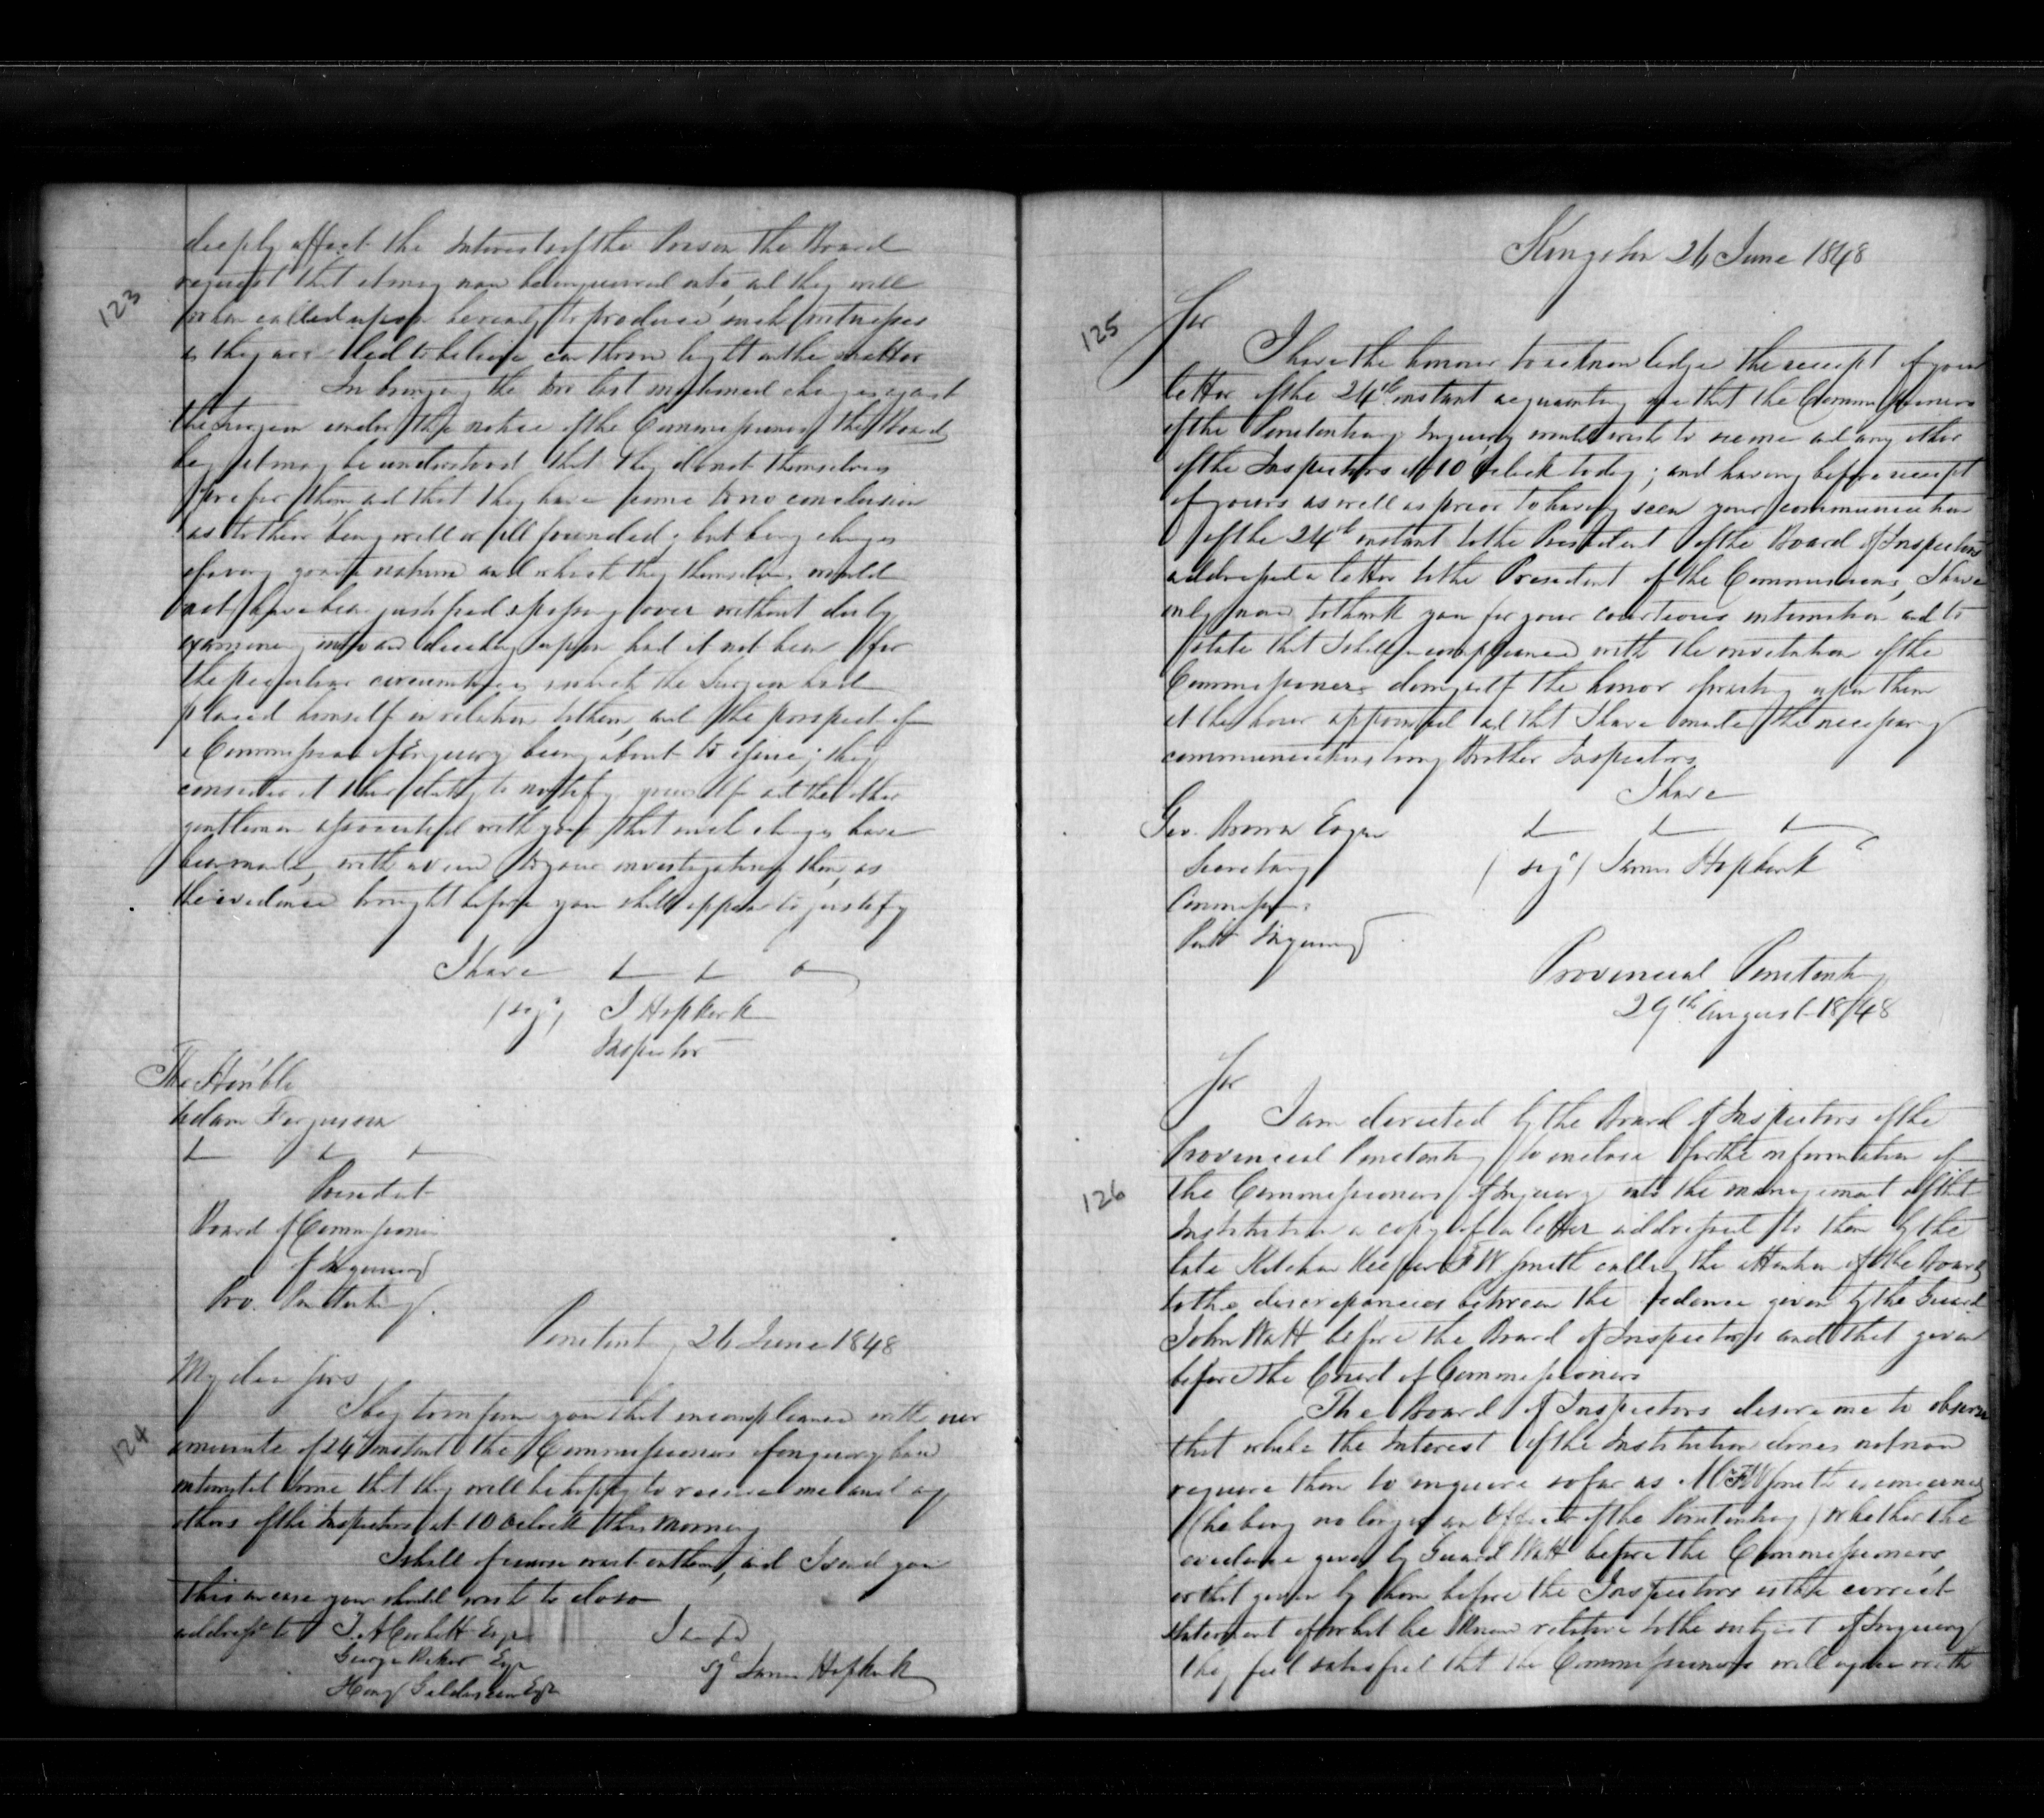 123
deeply affect the Interests of the Prison the Board
request that it may now be enquired into, and they will
when called upon be ready to produce such witnesses
as they are led to believe can throw light on the matter
In bringing the two last mentioned charges against
the Surgeon under the notice of the Commissioners the Board
beg it may be understood that they do not themselves
prefer them, and that they have come to no conclusion
as to their being well or ill founded; but being charges
of a very grave nature and which they themselves would
not have been justified in passing over without duly
examining into and deciding upon had it not been for
the peculiar circumstances in which the Surgeon had
placed himself in relation to them, and the prospect of
a Commission of Enquiry being about to issue; they
consider it their duty to notify yourself and the other
gentlemen associated with you that such charges have
been made, with a view to your investigating them, as
the evidence brought before you shall appear to justify
I have
(sigd) J Hopkirk
Inspector
The Honble
Adam Fergusson
President
Board of Commissioners
of Inquiry
Pro. Penitentiary
Penitentiary 26 June 1848
124
My dear Sirs
I beg to inform you that in compliance with our
minute of 24 instant the Commissioners of enquiry have
intimated to me that they will be happy to receive me and any
others of the Inspectors at 10 oclock this morning
I shall of course wait on them, and I send you
this in case you should wish to do so
addressed to T. A Corbett Esqr
George Baker Esqr
Henry Gildersleeve Esqr
sgd James Hopkirk
Kingston 26 June 1848
125
Sir
I have the honour to acknowledge the receipt of your
letter of the 24th instant acquainting me that the Commissioners
of the Penitentiary Inquiry would wish to see me and any other
of the Inspectors at 10 oclock today; and having before receipt
of yours as well as prior to having seen your communication
of the 24th instant to the President of the Board of Inspectors
addressed a letter to the President of the Commissioners, I have
only now to thank you for your courteous intimation and to
state that I shall in compliance with the invitation of the
Commissioners do myself the honor of waiting upon them
at the hour appointed and that I have made the necessary
communication to my Brother Inspectors
I have
Geo. Brown Esqr
Secretary
(sigd) James Hopkirk
Commissn
Penitt Inquiry
Provincial Penitentiary
29th August 1848
126
Sir
I am directed by the Board of Inspectors of the
Provincial Penitentiary to enclose for the information of
the Commissioners of Inquiry into the management of that
Institution a copy of a letter addressed to them by the
late Kitchen Keeper F W Smith calling the attention of the Board
to the discrepancies between the evidence given by the Guard
John Watt before the Board of Inspectors and that given
before the Court of Commissioners
The Board of Inspectors desire me to observe
that while the Interest of the Institution does not now
require them to inquire so far as Mr F W Smith is concerned
(he being no longer an Officer of the Penitentiary) whether the
evidence given by Guard Watt before the Commissioners,
or that given by him before the Inspectors is the correct
statement of what he knew relative to the subject of Inquiry
they feel satisfied that the Commissioners will agree with